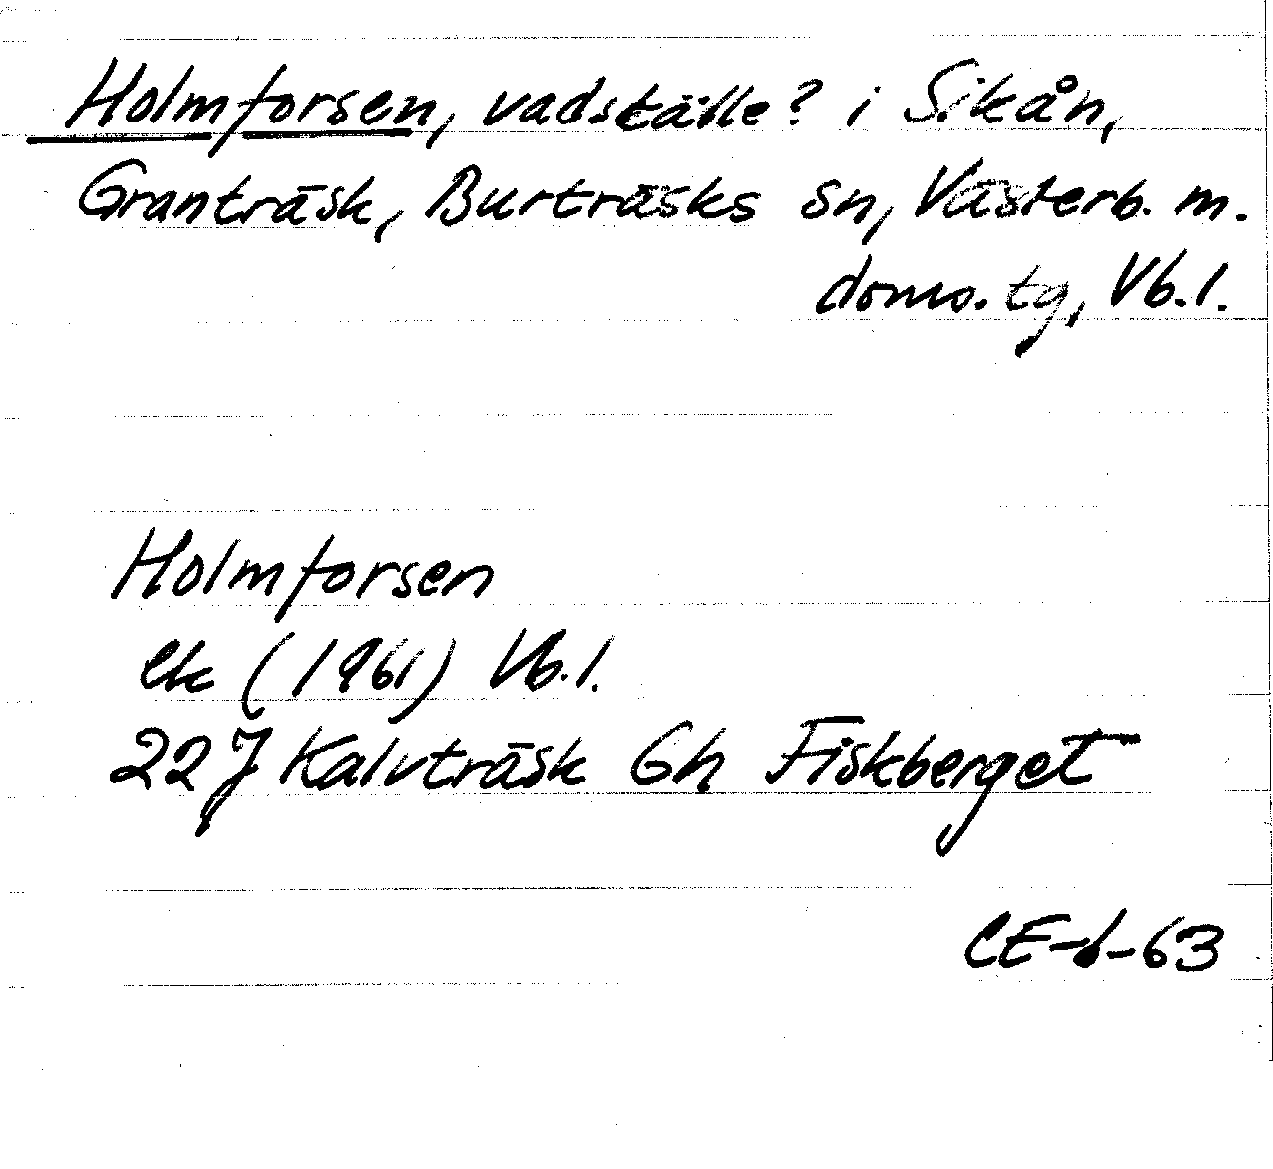 Holmforsen, vadställe? i Sikån,
Granträsk, Burträsks sn, Västerb. m.
doms. tg, Vb. l.
Holmforsen
ek (1961) Vb. l.
22J Kalvträsk Gh Fiskberget
CE-6-63